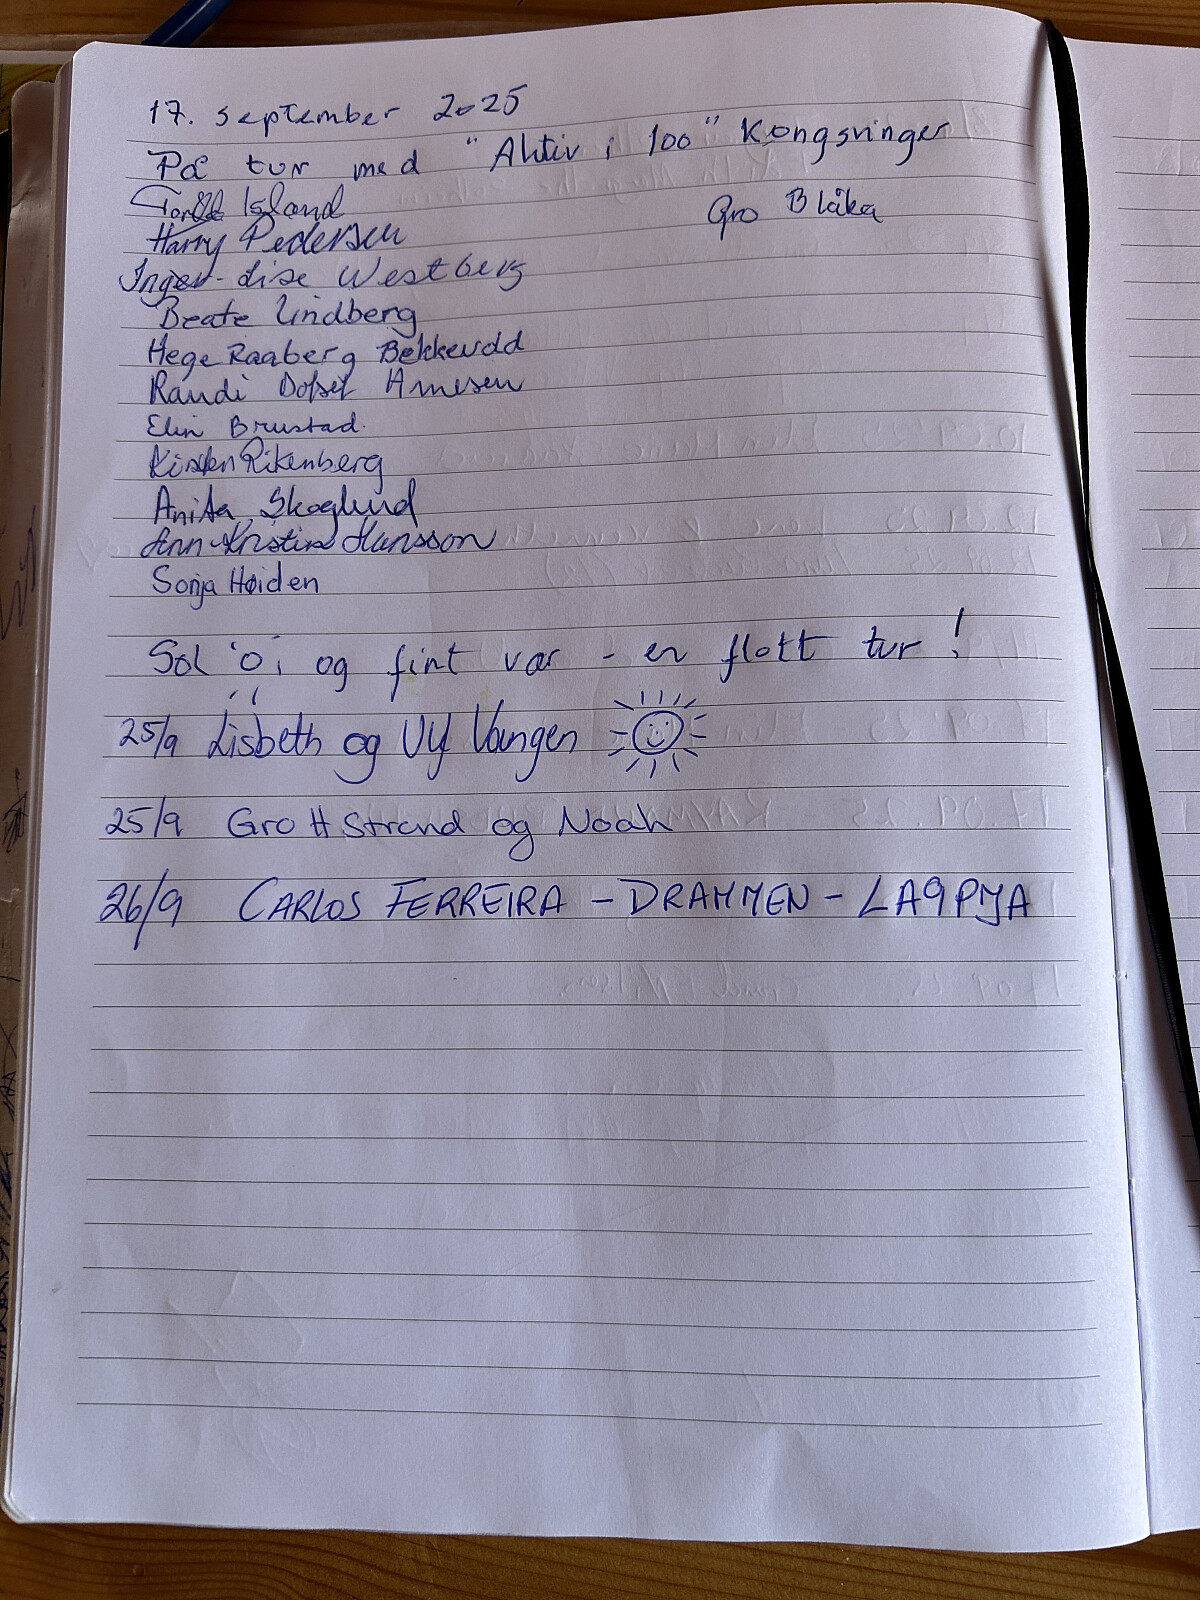 17. september 2025
På tur med "Aktiv i 100" Kongsvinger
Island Gro Blåka
Harry Pedersen
Inger-Lise Westberg
Beate Lindberg
Hege Raaberg Bekkevold
Randi Arnesen
Elin Brustad.
Kirsten Rikenberg
Anita Skoglund
Ann-Kristin Hansson
Sonja Høiden
Sol og fint vær - en flott tur!
25/9 Lisbeth og Ulf Vangen
25/9 Gro H Strand og Noah
26/9 CARLOS FERREIRA - DRAMMEN - LA9PJA